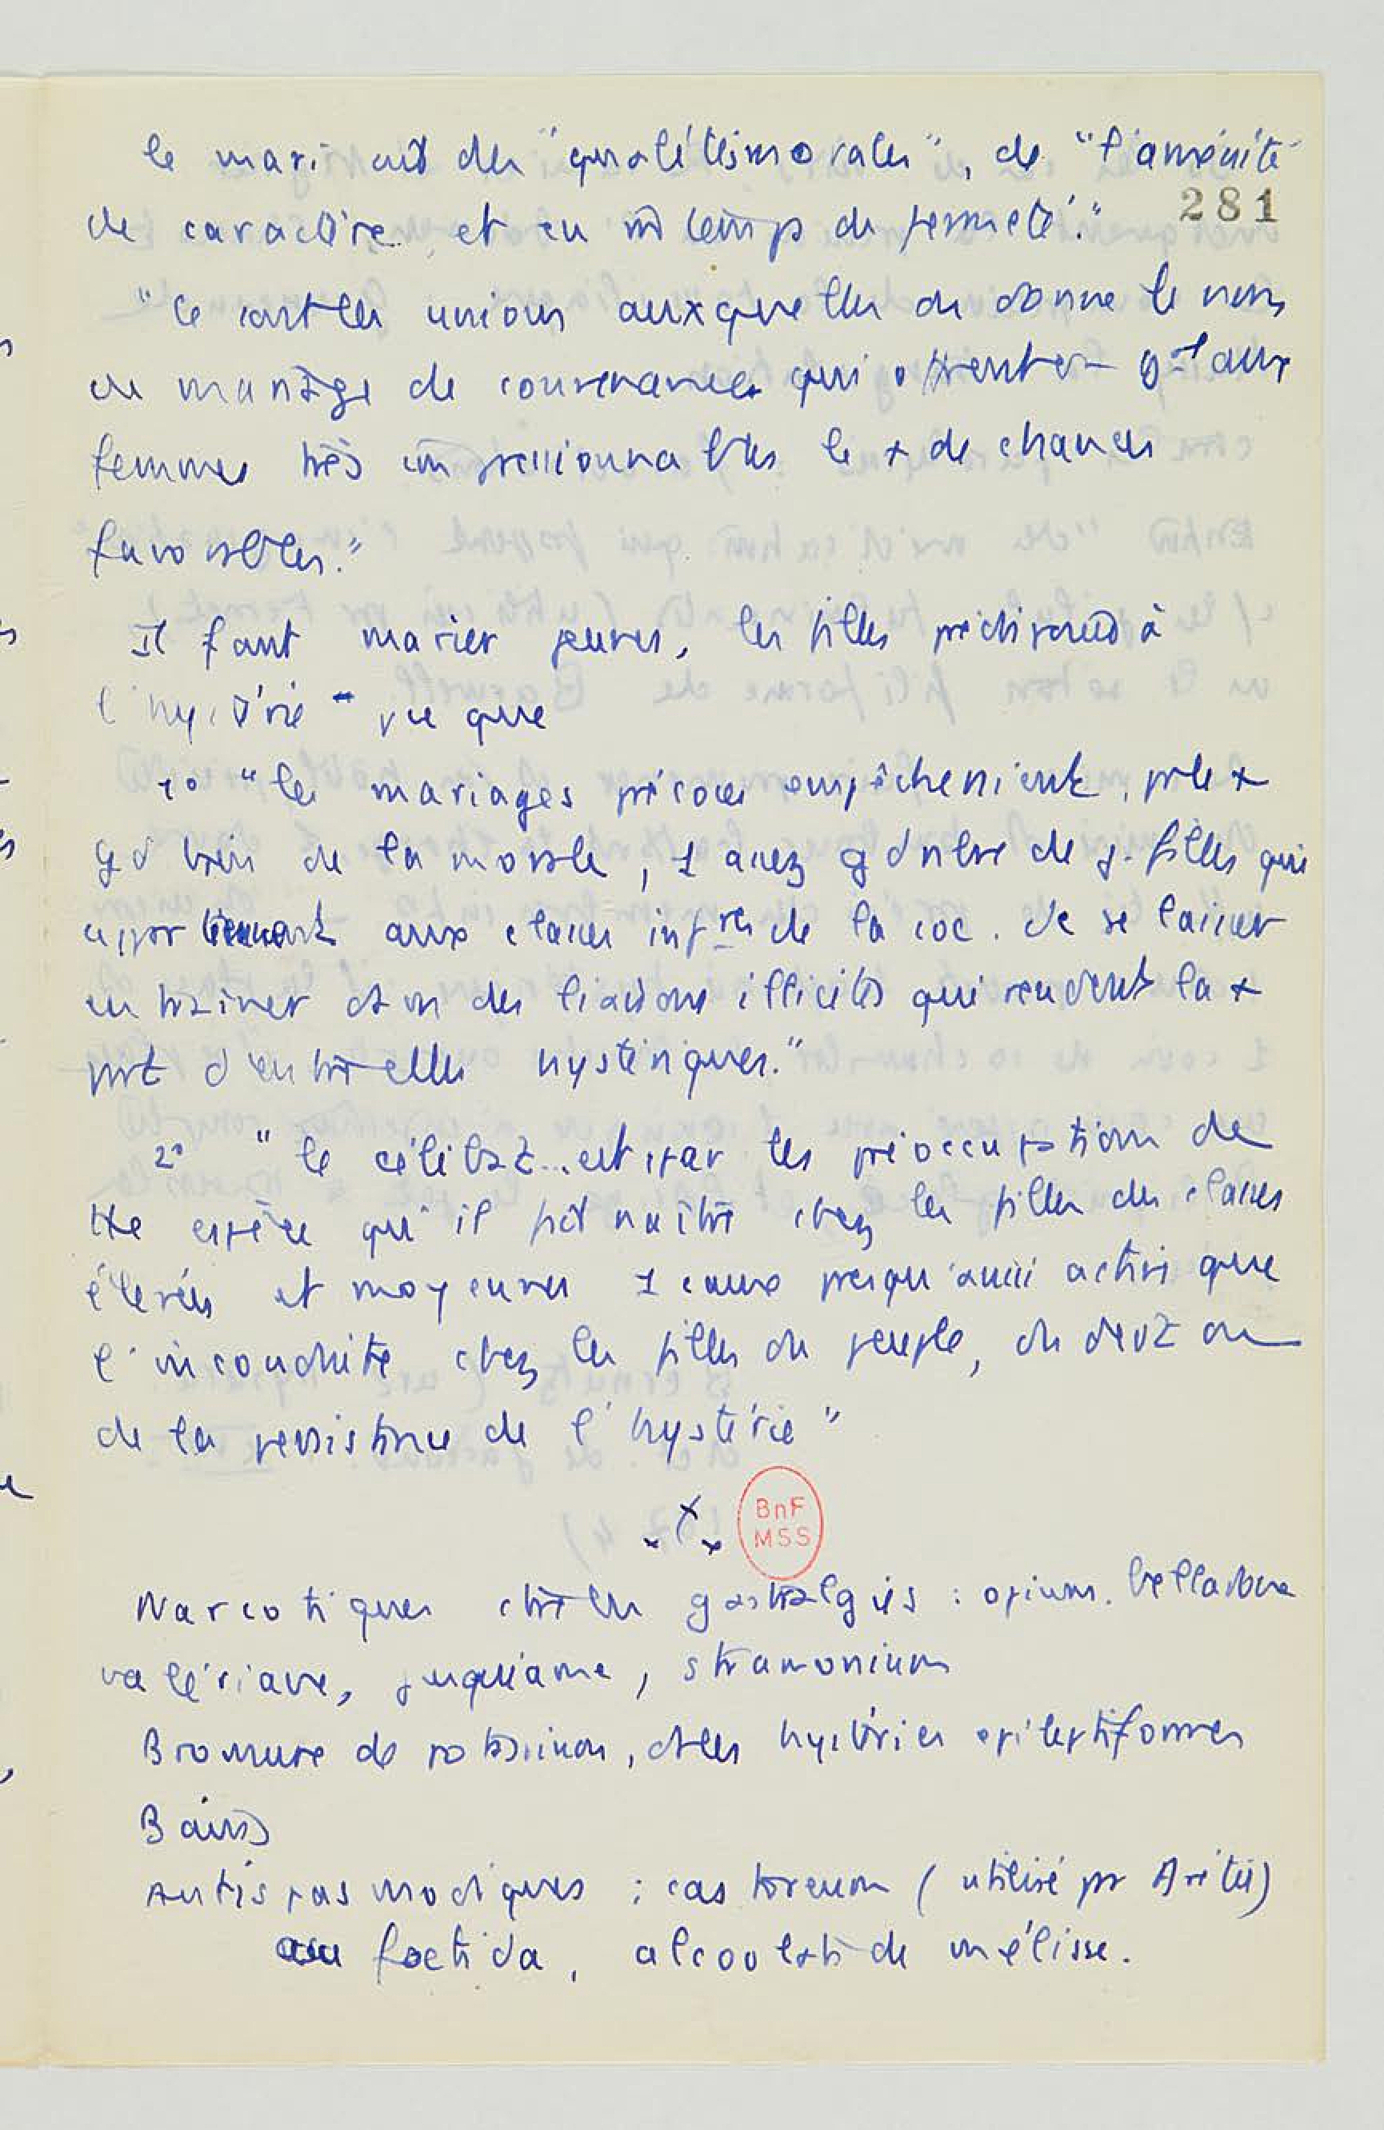 le mari ait des "qualités morales", de "l'aménité
281
de caractère et en m̂ temps de fermeté."
"ce sont les unions auxquelles on donne le nom
de mariage de convenances qui offrent aux
femmes très impressionnables le + de chances
favorables."
Il faut marier jeunes, les filles prédisposées à
l'hystérie vu que
1° "les mariages précoces empêcheraient, pr le +
gd bien de la morale, 1 assez gd nbre de j. filles qui
appartiennent aux classes infres de la soc. de se laisser
entraîner ds des liaisons illicites qui rendent la +
part d'entre elles hystériques."
2° "le célibat... est par les préoccupations de
tte espèce qu'il fait naître chez les filles des classes
élevées et moyennes 1 cause presqu'aussi active que
l'inconduite chez les filles du peuple, du
de la persistance de l'hystérie"
x x x
BnF
MSS
Narcotiques ctre les gastralgies : opium. belladone
valériane, jusquiame, stramonium
Bromure de potassium, ds les hystéries épileptiformes
Bains
Antispasmodiques : castoreum (utilisé pr Arétée)
foetida, alcoolat de mélisse.